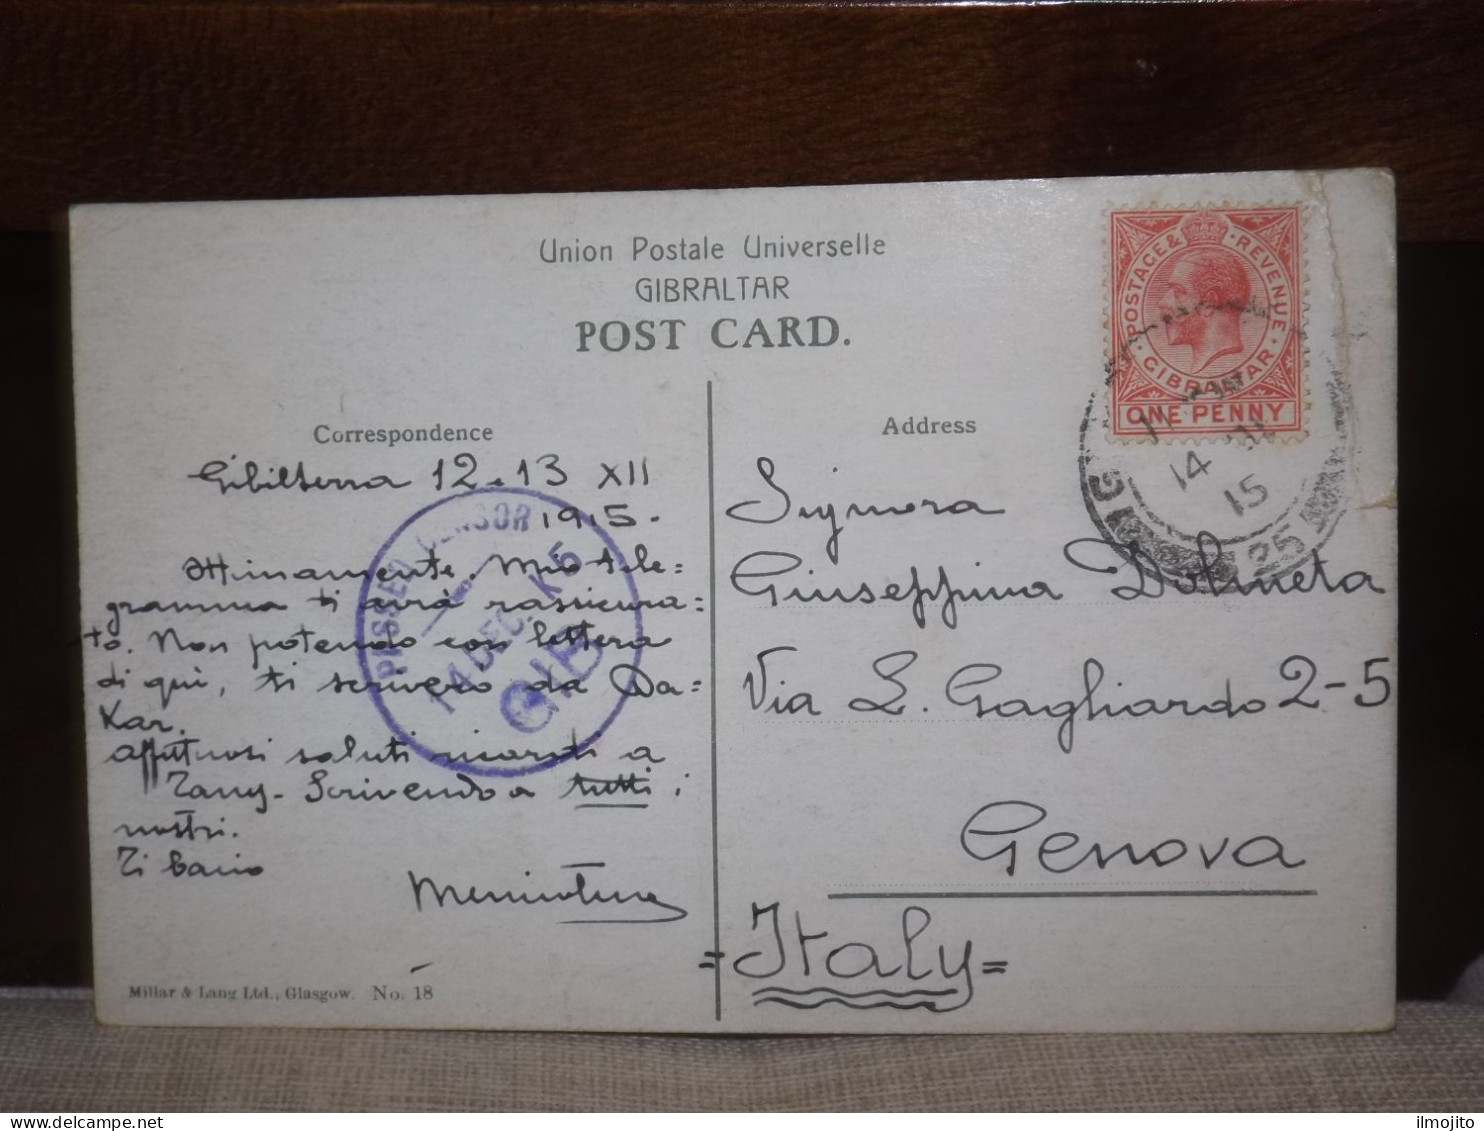 Union Postale Universelle
GIBRALTAR
POST CARD.
Correspondence
Gibilterra 12.13 XII
1915.
Attinamente. Mio tele=
gramma ti avrà rassicura=
to. Non potendo con lettera
di qui, ti scriverò da Da=
Kar.
affettuosi saluti ricordi a
Tany. Scrivendo a tutti i
nostri.
Ti bacio
Millar & Lang Ltd., Glasgow. No. 18
PASSED CENSOR
14 DEC. K5
GIB
POSTAGE & REVENUE
GIBRALTAR
ONE PENNY
14
15
25
Address
Signora
Giuseppina Dolmeta
Via L. Gagliardo 2-5
Genova
=Italy=
delcampe.net
ilmojito